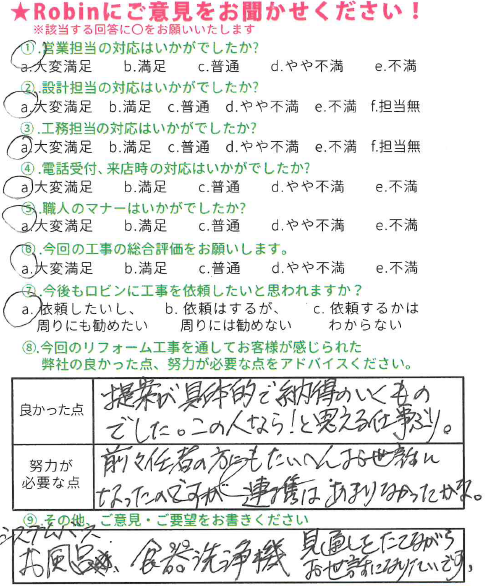 ★Robinにご意見をお聞かせください！
※該当する回答に〇をお願いいたします
①.営業担当の対応はいかがでしたか?
a.大変満足 b.満足 c.普通 d.やや不満 e.不満
②.設計担当の対応はいかがでしたか?
a.大変満足 b.満足 c.普通 d.やや不満 e.不満 f.担当無
③.工務担当の対応はいかがでしたか?
a.大変満足 b.満足 c.普通 d.やや不満 e.不満 f.担当無
④.電話受付、来店時の対応はいかがでしたか?
a.大変満足 b.満足 c.普通 d.やや不満 e.不満
⑤.職人のマナーはいかがでしたか?
a.大変満足 b.満足 c.普通 d.やや不満 e.不満
⑥.今回の工事の総合評価をお願いします。
a.大変満足 b.満足 c.普通 d.やや不満 e.不満
⑦.今後もロビンに工事を依頼したいと思われますか？
a. 依頼したいし、 b. 依頼はするが、 c. 依頼するかは
周りにも勧めたい 周りには勧めない わからない
⑧.今回のリフォーム工事を通してお客様が感じられた
弊社の良かった点、努力が必要な点をアドバイスください。
良かった点
提案が具体的で納得のいくもの
でした。この人なら！と思える仕事ぶり。
努力が
必要な点
前々任者の方にもたいへんお世話に
なったのですが 連携はあまりなかったかな。
⑨ その他、ご意見・ご要望をお書きください
システムバス
お風呂 食器洗浄機 見通しをたてながら
お世話になりたいです。